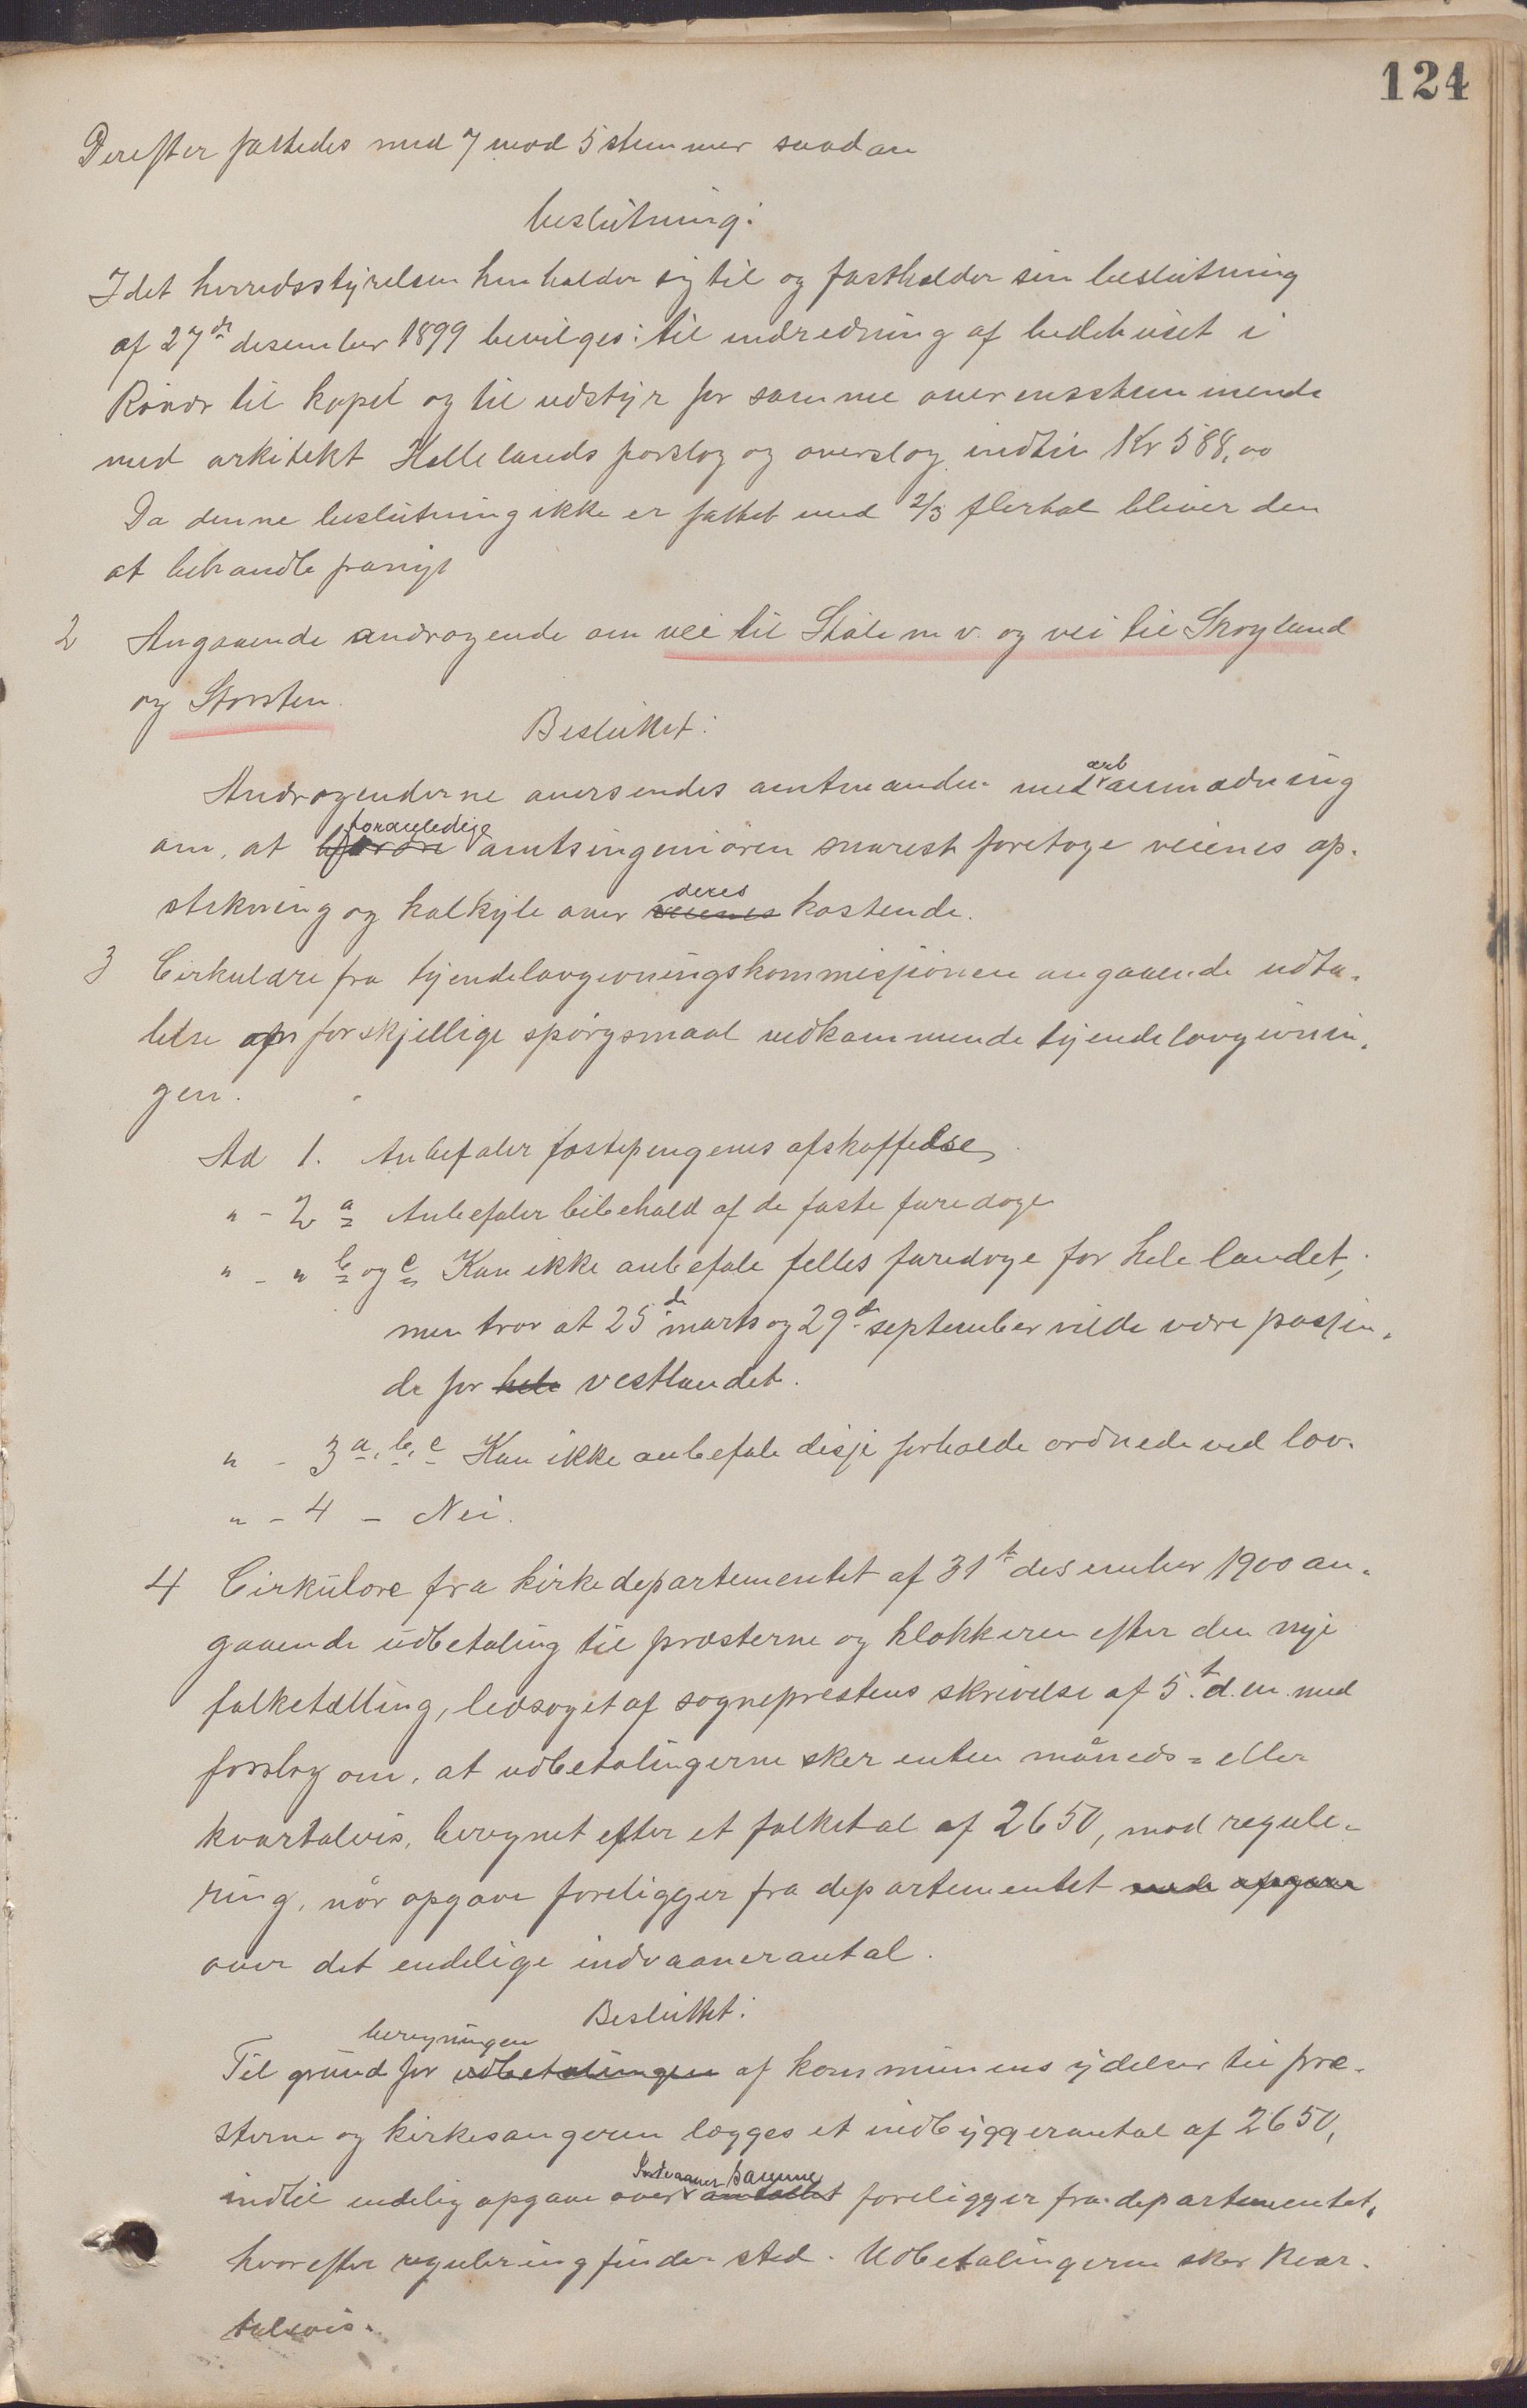 124
Derefter fattedes med 7 mod 5 stemmer saadan
beslutning:
Idet herredsstyrelsen henholder sig til og fastholder sin beslutning
af 27de desember 1899 bevilges: til indredning af bedehuset i
til kapel og til udstyr for samme overensstemmende
med arkitekt Hellelands forslag og overslag indtil Kr 588,00
Da denne beslutning ikke er fattet med 2/3 flertal bliver den
at behandle paanyt
2 Angaaende andragende om vei til Ståle m v. og vei til Skoyland
og Storsten.
Besluttet:
Andragenderne oversendes amtmanden med ærb anmodning
om, at foranledige amtsingeniøren snarest foretage veienes op-
stikning og kalkyle over veienes deres kostende.
3 Cirkulære fra tyendelovgivningskommisjionen angaaende udta-
lelse om forskjellige spørgsmaal vedkommende tyendelovgivnin-
gen.
Ad 1. Anbefaler fæstepengenes afskaffelse
" - 2 a Anbefaler bibehold af de faste faredage
" - " b og c Kan ikke anbefale felles faredage for hele landet,
men tror at 25de marts og 29de september vilde være passen-
de for hele vestlandet.
" - 3 a, b, c Kan ikke anbefale disje forholde ordnede ved lov.
" - 4 - Nei.
4 Cirkulære fra kirkedepartementet af 31te desember 1900 an-
gaaende udbetaling til præsterne og klokkeren efter den nye
folketælling, ledsaget af sogneprestens skrivelse af 5te d.m. med
forslag om, at udbetalingerne sker enten måneds- eller
kvartalvis, beregnet efter et folketal af 2650, mod regule-
ring, når opgave foreligger fra departementet opgave
over det endelige indvaanerantal.
Besluttet:
beregningen
Til grund for udbetalingen af kommunens ydelser til præ-
sterne og kirkesangeren lægges et indbyggerantal af 2650,
Indvaaner samme
indtil endelig opgave over antallet foreligger fra departementet,
hvorefter regulering finder sted. Udbetalingerne sker kvar-
talsvis.